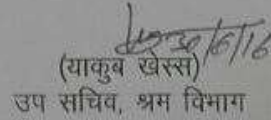 (याकुब खेस्स)
उप सचिव, श्रम विभाग